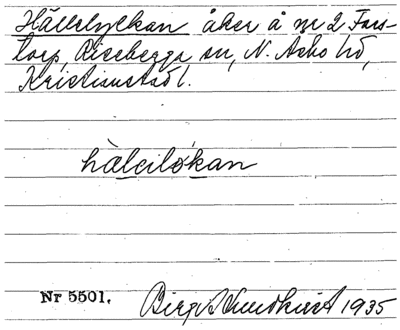 Hällelyckan åker å nr 2 Fors-
torp, Riseberga sn, N. Åsbo hd,
Kristianstad l.
hälelökan
Nr 5501. Birgit Sundkvist 1935